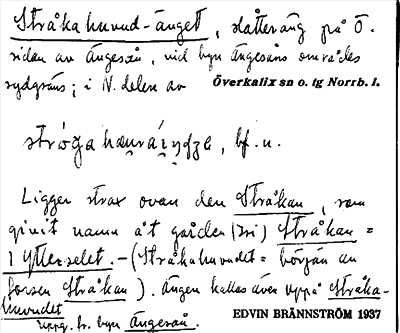 Stråkahuvud-änget, slåtteräng på Ö.
sidan av Ängesån, vid byn Ängesåns områdes
sydgräns; i N. delen av Överkalix sn o. tg Norrb. l.
bf. n.
Ligger strax ovan den Stråkan, som
givit namn åt gården (Isi) Stråkan =
1 Ytterselet. - (Stråkahuvudet = början av
forsen Stråkan). Ängen kallas även uppå Stråka-
huvudet
Uppg. fr. byn Ängesån.
EDVIN BRÄNNSTRÖM 1937